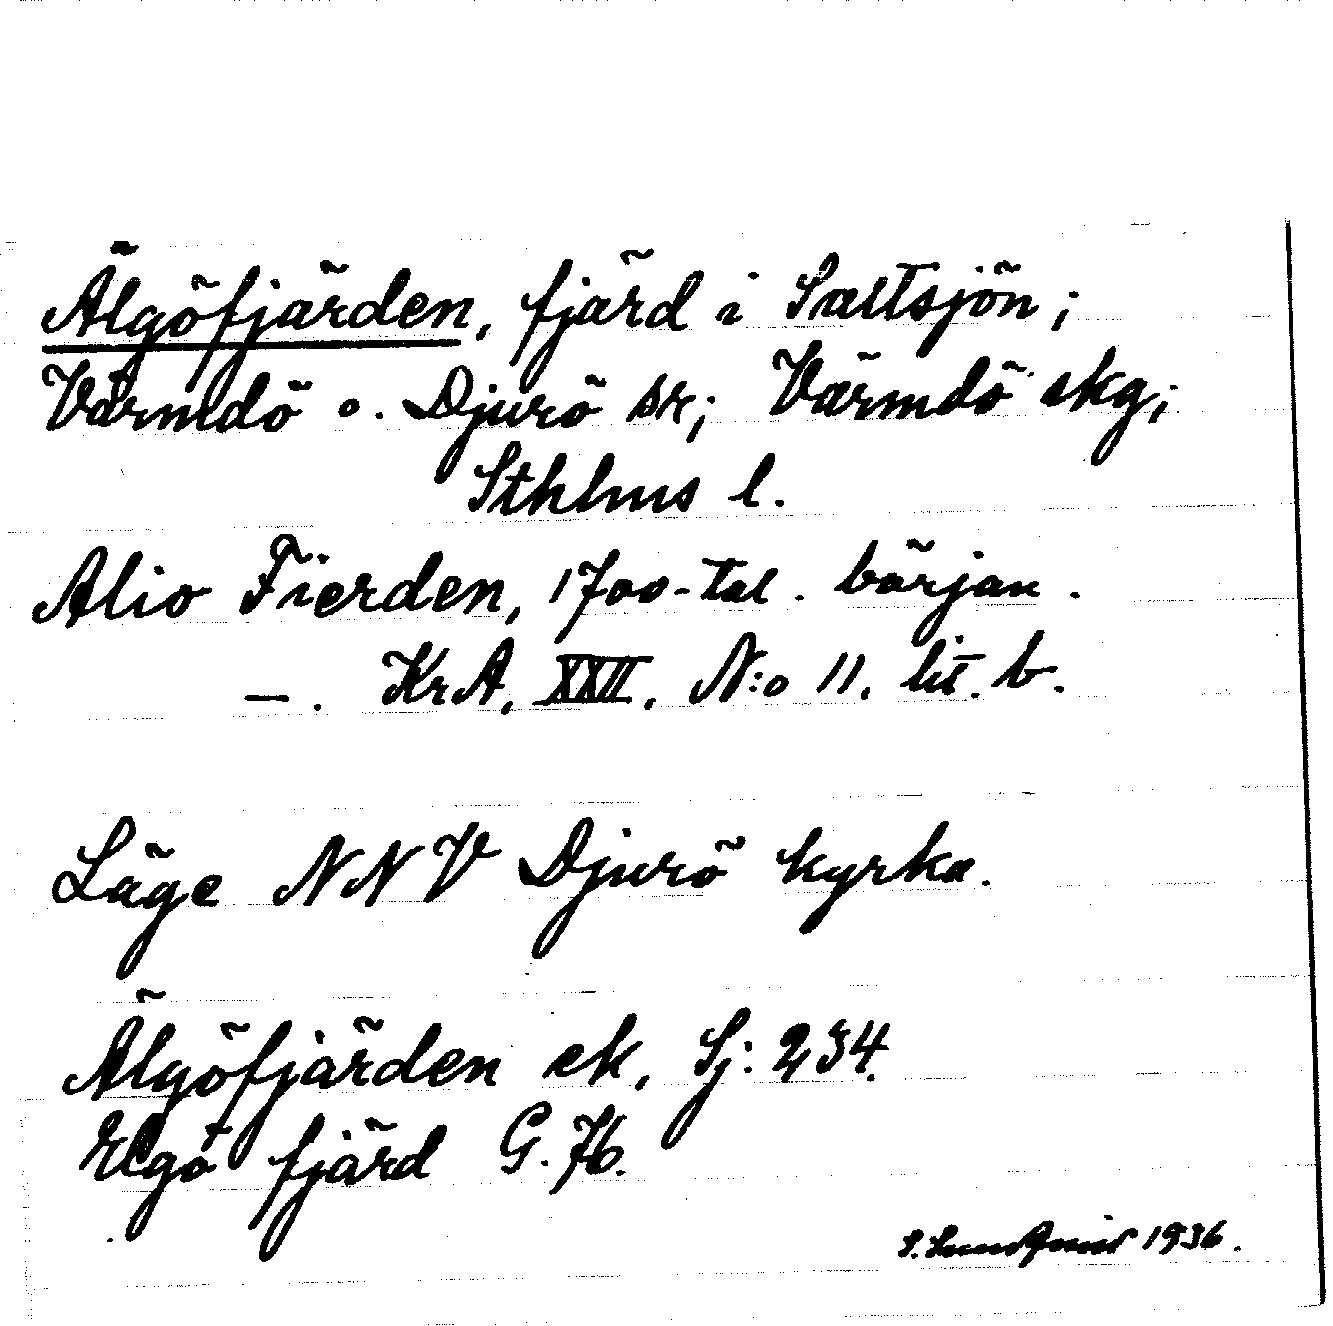 Älgöfjärden, fjärd i Saltsjön;
Värmdö o. Djurö sn; Värmdö skg;
Sthlms l.
Alio Fierden, 1700-tal. början.
—. KrA, XXII, N:o 11. lit. b.
Läge NNV Djurö kyrka.
Älgöfjärden ek, Sj: 234.
Elgö fjärd G. 76.
S. Lundqvist 1936.